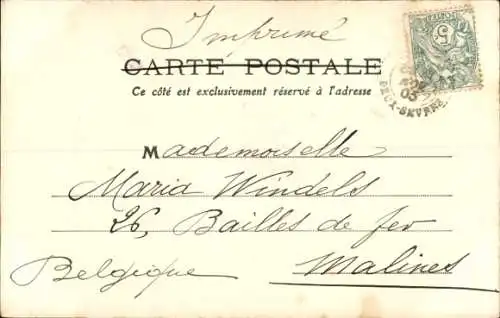 Imprimé
CARTE POSTALE
Ce côté est exclusivement réservé à l'adresse
Mademoiselle
Maria Windels
26, Bailles de fer
Malines
Belgique
5
03